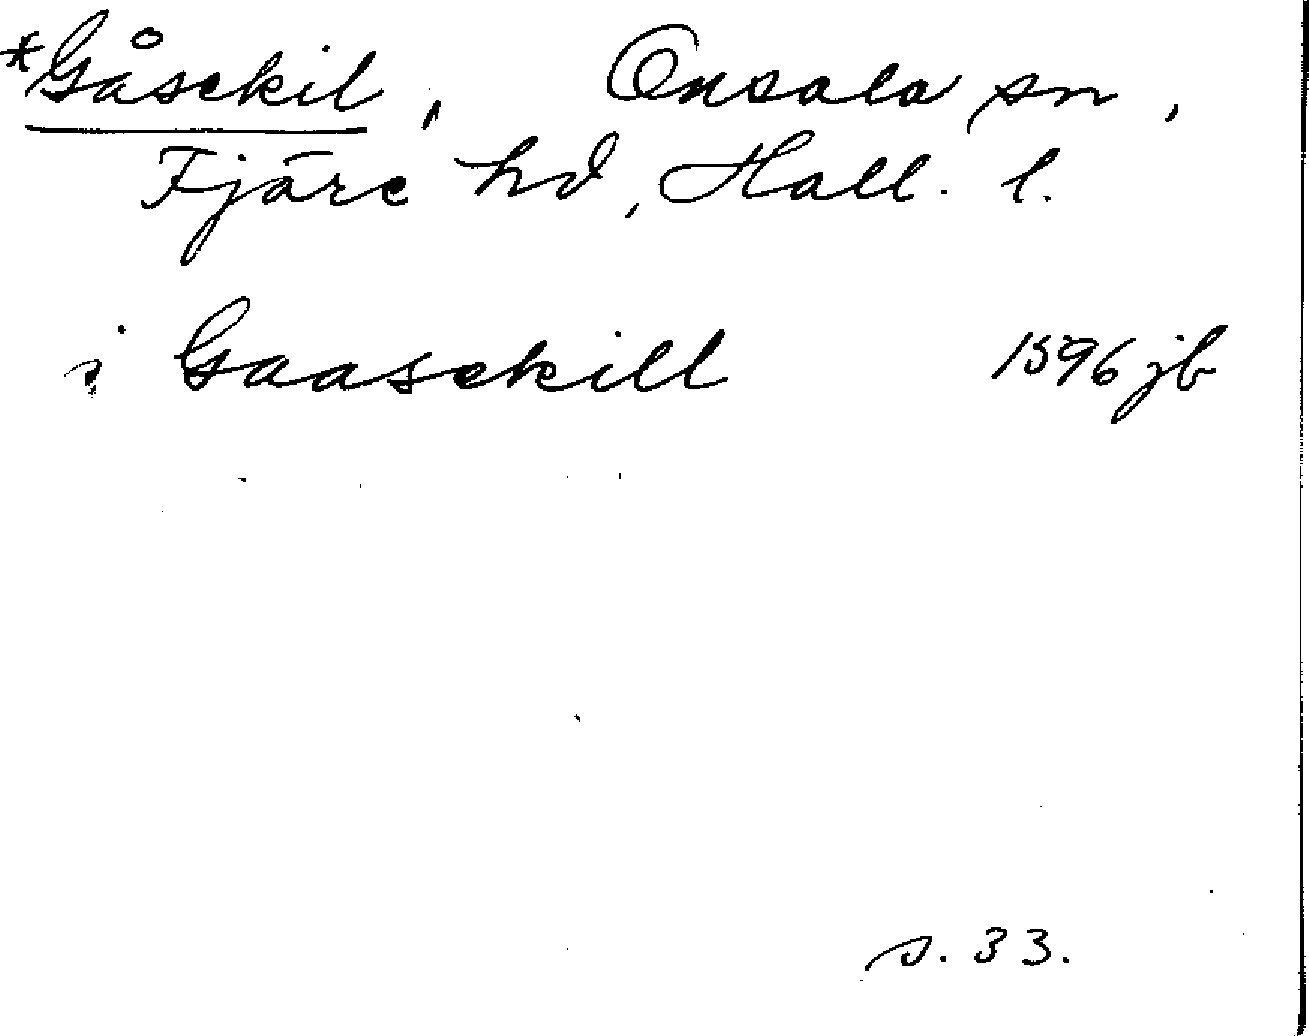 *Gåsekil, Onsala sn,
Fjäre hd, Hall. l.
i Gaasekill 1596 jb
s. 33.